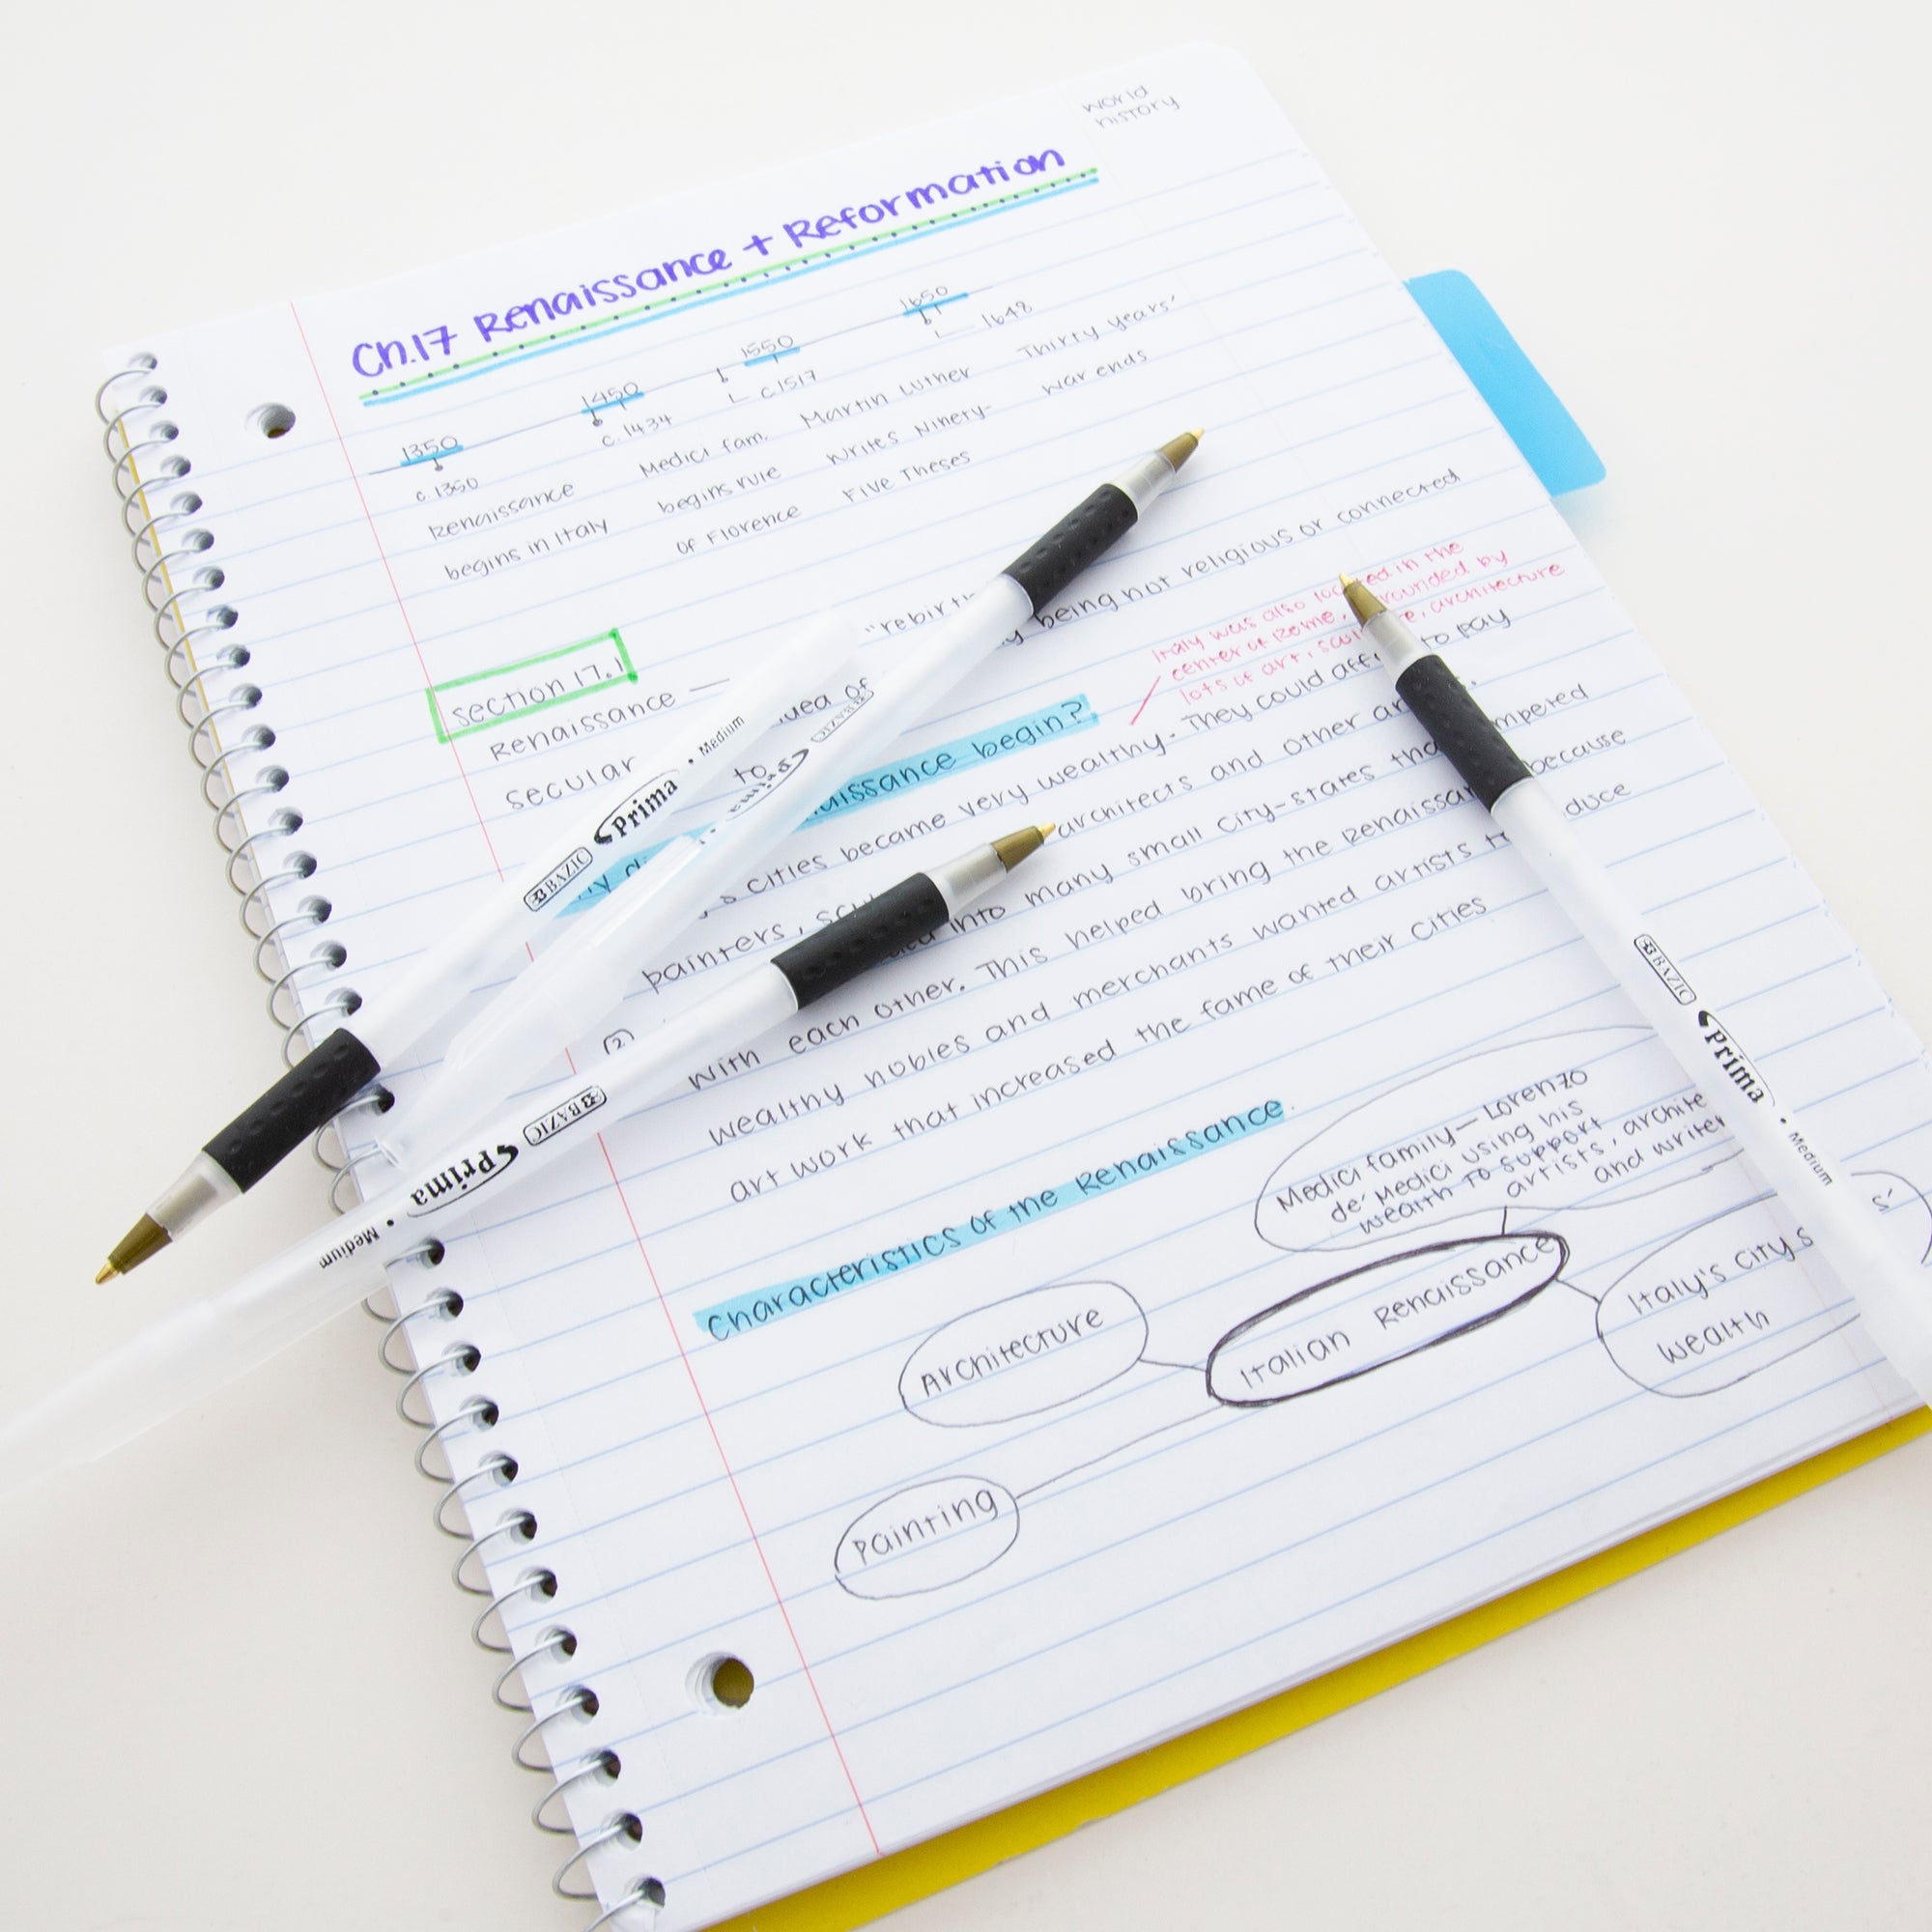 world
history
Ch.17 Renaissance + Reformation
1350 1450 1550 1650
c. 1350 c. 1434 c. 1517 1648
Renaissance Medici fam. Martin Luther Thirty Years'
begins in Italy begins rule writes Ninety- war ends
of Florence Five Theses
section 17.1
Renaissance — "rebirth
secular idea of being not religious or connected
to
Italy was also located in the
center of Rome, surrounded by
lots of art, sculpture, architecture
Renaissance begin?
cities became very wealthy. They could afford to pay
painters, architects and other
(2) into many small city-states that
with each other. This helped bring the Renaissance because
wealthy nobles and merchants wanted artists to produce
art work that increased the fame of their cities
Characteristics of the Renaissance
Medici family — Lorenzo
de' Medici using his
wealth to support
artists,
and
Italian Renaissance
Architecture
Italy's city
wealth
Painting
BAZIC Prima • Medium
BAZIC Prima
BAZIC Prima • Medium
BAZIC Prima • Medium